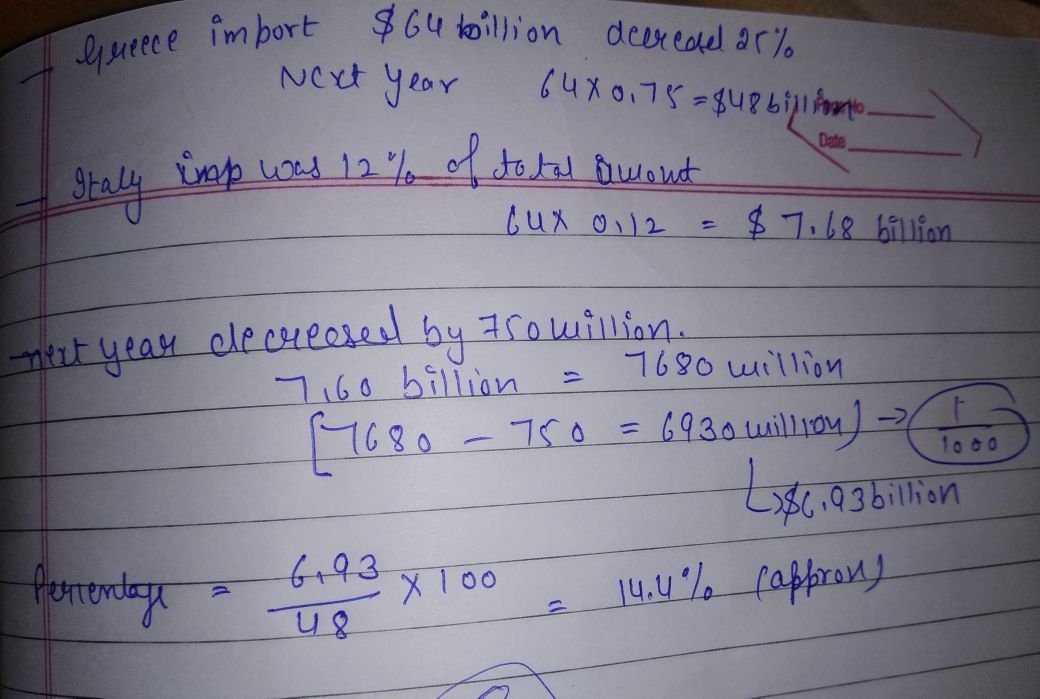 - Greece import $64 billion decreased 25%
Next year 64 x 0.75 = $48 billion
Page No.
Date
- Italy imp was 12% of total amount
64 x 0.12 = $ 7.68 billion
next year decreased by 750 million.
7.60 billion = 7680 million
[7680 - 750 = 6930 million) → 1/1000
↳ $6.93 billion
Percentage = 6.93/48 x 100 = 14.4% (approx)